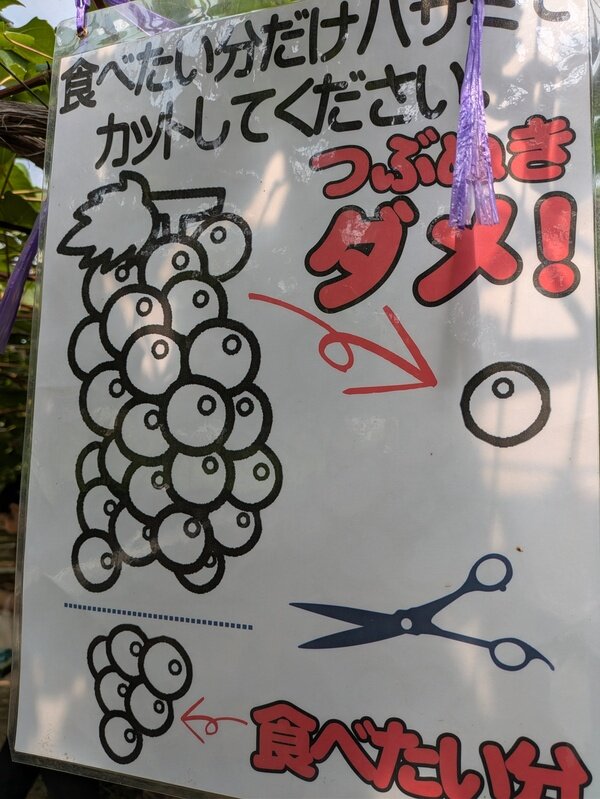 食べたい分だけハサミで
カットしてください。
つぶぬき
ダメ!
食べたい分